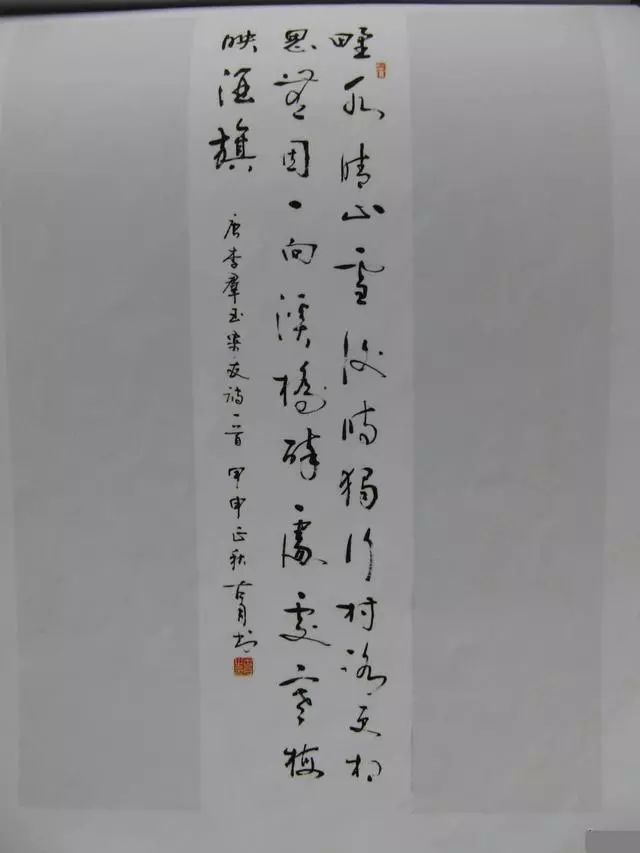 野水晴山雪後時獨行村路更相
思無因一向溪橋醉處處寒梅
映酒旗
唐李羣玉寄友詩一首 甲申正秋 書